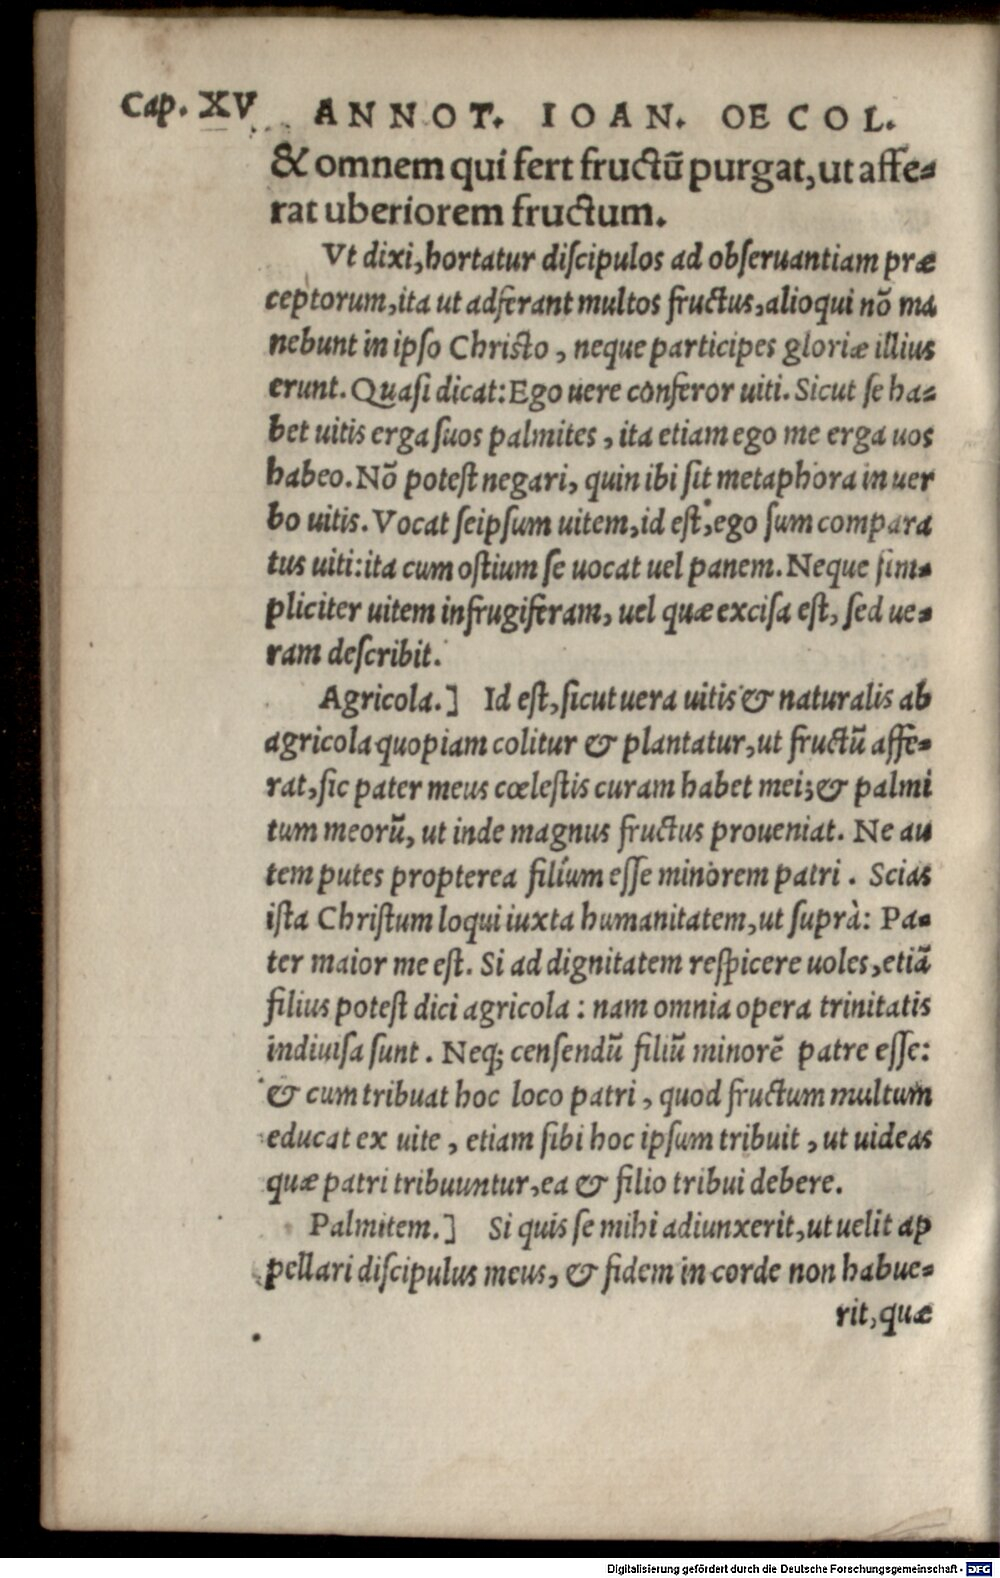 Cap. XV ANNOT. IOAN. OECOL.
& omnem qui fert fructũ purgat, ut affe-
rat uberiorem fructum.
Vt dixi, hortatur discipulos ad obseruantiam præ
ceptorum, ita ut adferant multos fructus, alioqui nõ ma
nebunt in ipso Christo, neque participes gloriæ illius
erunt. Quasi dicat: Ego uere conferor uiti. Sicut se ha-
bet uitis erga suos palmites, ita etiam ego me erga uos
habeo. Nõ potest negari, quin ibi sit metaphora in uer
bo uitis. Vocat seipsum uitem, id est, ego sum compara
tus uiti: ita cum ostium se uocat uel panem. Neque sim-
pliciter uitem infrugiferam, uel quæ excisa est, sed ue-
ram describit.
Agricola.] Id est, sicut uera uitis & naturalis ab
agricola quopiam colitur & plantatur, ut fructũ affe-
rat, sic pater meus cœlestis curam habet mei; & palmi
tum meorũ, ut inde magnus fructus proueniat. Ne au
tem putes propterea filium esse minorem patri. Scias
ista Christum loqui iuxta humanitatem, ut suprà: Pa-
ter maior me est. Si ad dignitatem respicere uoles, etiã
filius potest dici agricola: nam omnia opera trinitatis
indiuisa sunt. Neq; censendũ filiũ minorẽ patre esse:
& cum tribuat hoc loco patri, quod fructum multum
educat ex uite, etiam sibi hoc ipsum tribuit, ut uideas
quæ patri tribuuntur, ea & filio tribui debere.
Palmitem.] Si quis se mihi adiunxerit, ut uelit ap
pellari discipulus meus, & fidem in corde non habue-
rit, quæ
Digitalisierung gefördert durch die Deutsche Forschungsgemeinschaft - DFG